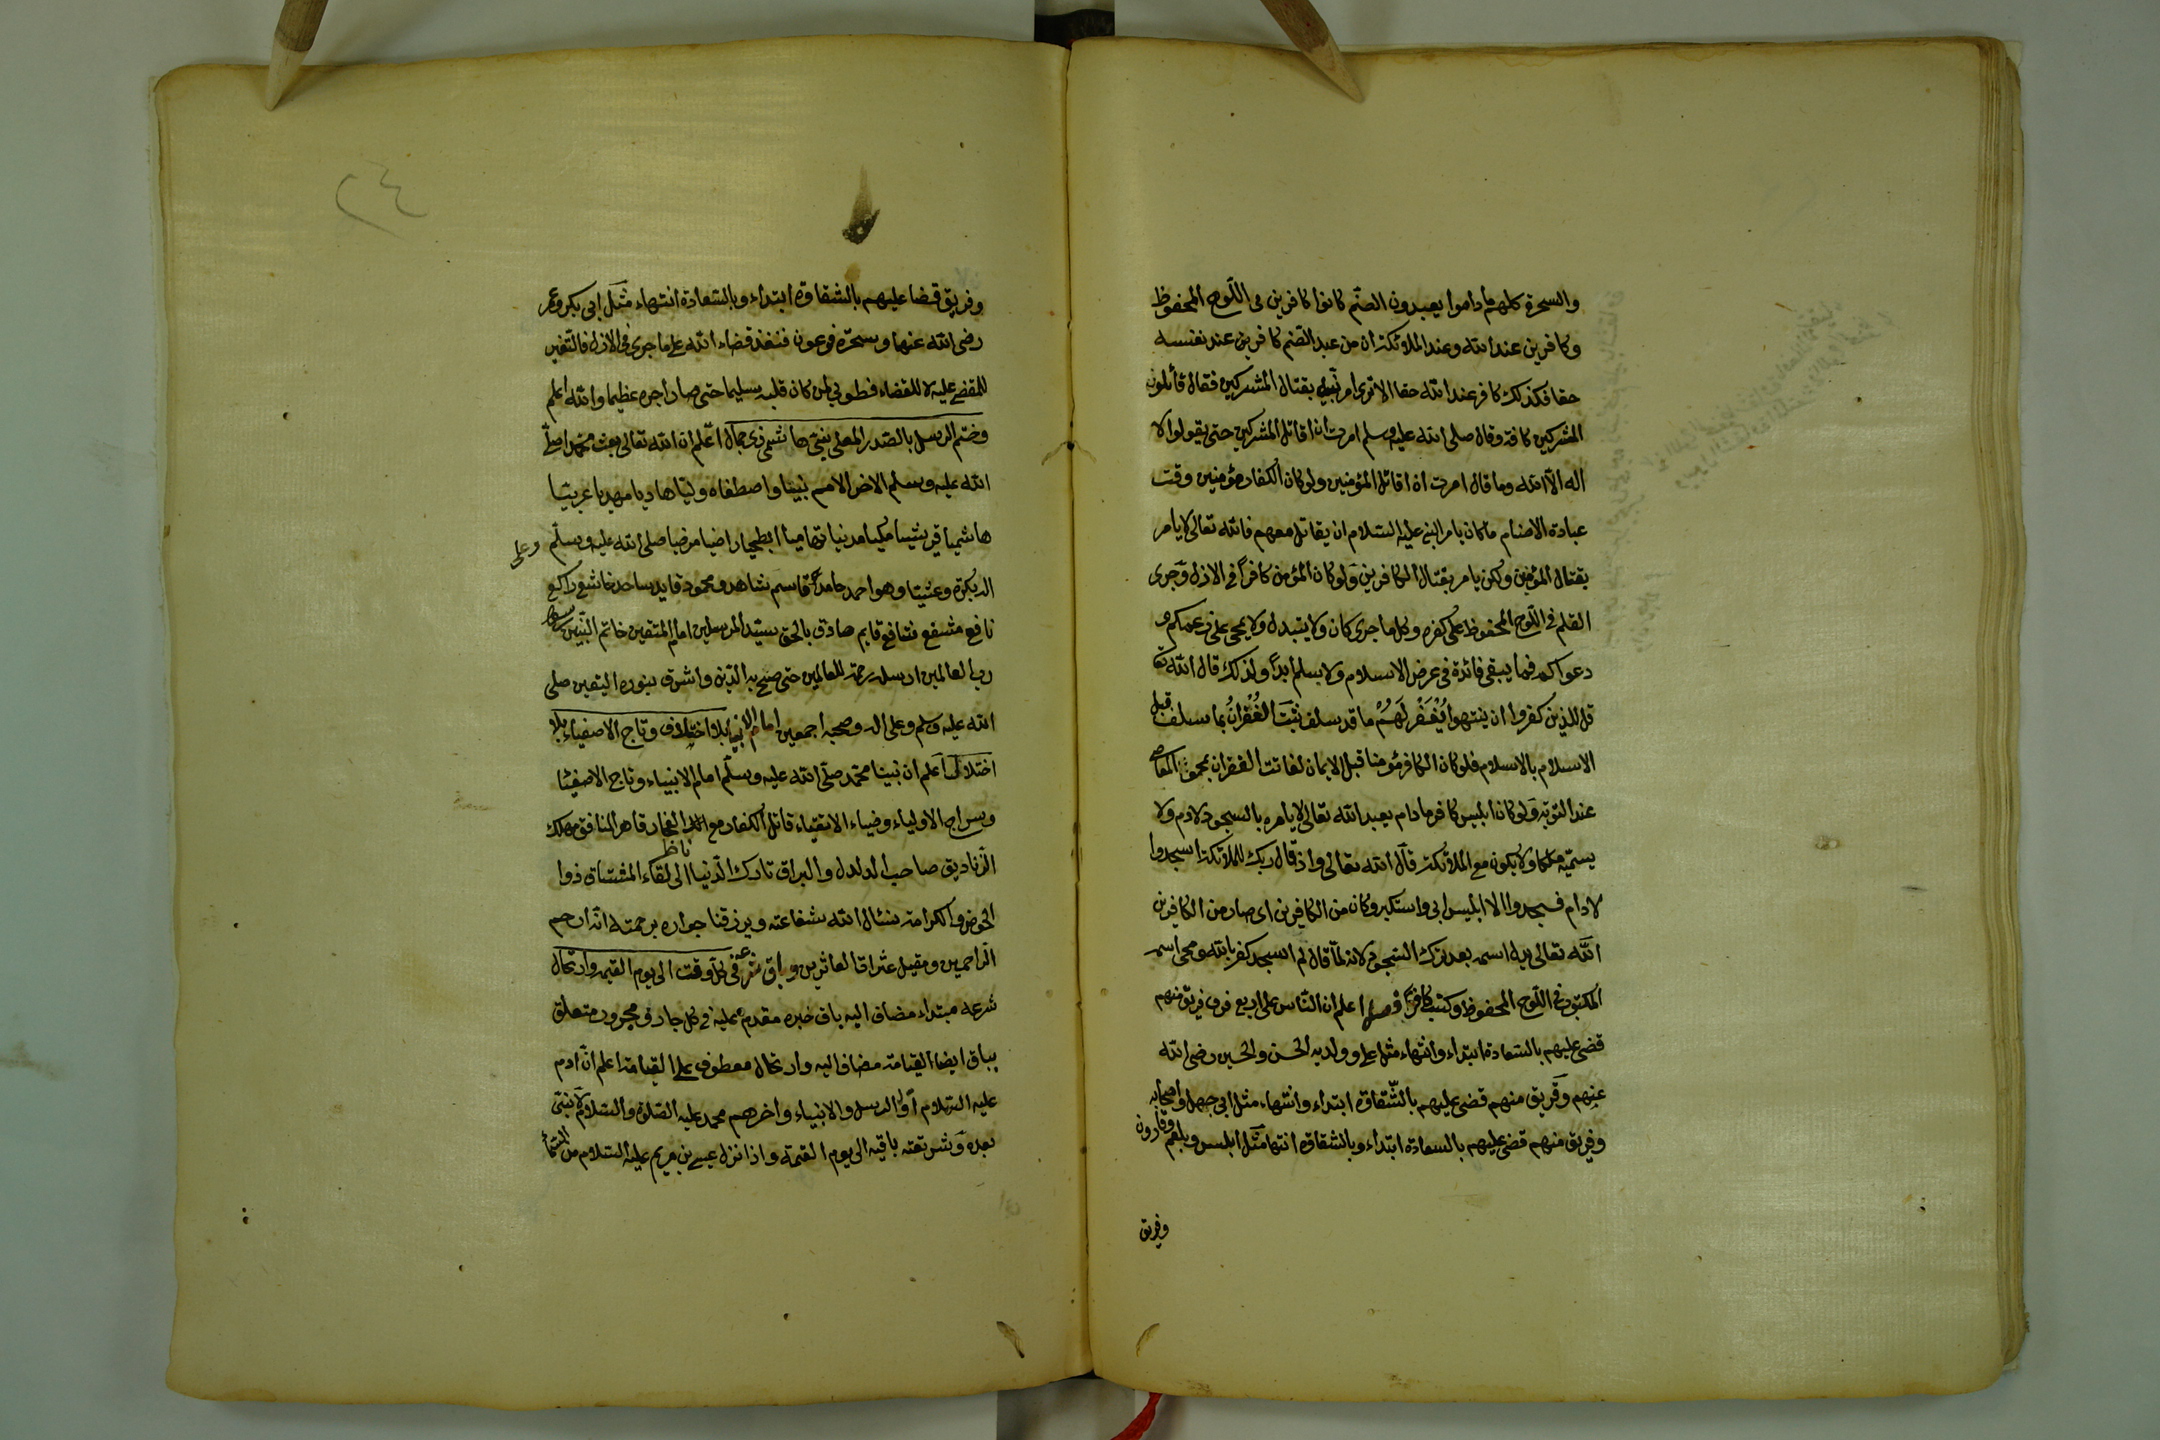 والسحرة كلهم ما داموا يعبدون الصنم كانوا كافرين فى اللوح المحفوظ
وكافرين عند الله وعند الملائكة ان من عبد الصنم كافر من عند نفسه
حقا فكذلك كافر عند الله حقا الا ترى امر نبيه بقتال المشركين فقال قاتلون
المشركين كافة وقال صلى الله عليه وسلم امرت ان اقاتل المشركين حتى يقولوا لا
اله الا الله وما قال امرت ان اقاتل المؤمنين ولو كان الكفار مؤمنين وقت
عبادة الاصنام ما كان يامر النبى عليه السلام ان يقاتل معهم فالله تعالى لا يامر
بقتال المؤمنين ولكن يامر بقتال الكافرين ولو كان المؤمن كافرا فى الازل وجرى
القلم فى اللوح المحفوظ على كفره وكل ما جرى كان ولا يتبدل ولا يمحى على زعمكم و
دعواكم فما يبقى فائدة فى عرض الاسلام ولا يسلم ابدا ولذلك قال الله تعا
قل للذين كفروا ان ينتهوا يُغْفَرْ لَهُمْ ما قد سلف ثبت الغفران بما سلف قبل
الاسلام بالاسلام فلو كان الكافر مؤمنا قبل الايمان لفاتت الغفران بمحق المعاصى
عند التوبة ولو كان ابليس كافرا ما دام يعبد الله تعالى لا يامره بالسجود لادم ولا
يسميه ملكا ولا يكون مع الملائكة قال الله تعالى واذ قال ربك للملائكة اسجدوا
لادام فسجدوا الا ابليس ابى واستكبر وكان من الكافرين اى صار من الكافرين
الله تعالى اسمه بعد ترك السجود لانه لما قال لم اسجد كفر بالله ومحى اسمه
المكتوب فى اللوح المحفوظ وكتب كافرا فصل اعلم ان الناس على اربع فرق فريق منهم
قضى عليهم بالسعادة ابتداء وانتهاء مثل على وولديه الحسن والحسين رضى الله
عنهم وفريق منهم قضى عليهم بالشقاوة ابتداء وانتهاء مثل ابى جهل واصحابه
وفريق منهم قضى عليهم بالسعادة ابتداء وبالشقاوة انتها مثل ابليس وبلعم وقارون
وفريق
٢٤
وفريق قضا عليهم بالشقاوة ابتداء وبالسعادة انتهاء مثل ابى بكر وعمر
رضى الله عنهما وسحرة فرعون فنفذ قضاء الله على ما جرى فى الازل فالتغير
للمقضى عليه لا للقضاء فطوبى لمن كان قلبه سليما حتى صار اجره عظيما والله اعلم
وختم الرسل بالصدر المعلى نبى هاشمى ذى جمال اعلم ان الله تعالى بعث محمدا صلى
الله عليه وسلم الاخر الامم نبينا واصطفاه وليا هاديا مهديا عربيا
هاشميا قريشيا مكيا مدنيا تهاميا ابطحيا راضيا مرضيا صلى الله عليه وسلم وعلى
اله بكرة وعشيا وهو احمد حامد قاسم شاهد ومحمود قايد ساجد خاشع راكع
نافع مشفع شافع قايم صادق بالحق سيد المرسلين امام المتقين خاتم النبيين رسول
رب العالمين ارسله رحمة للعالمين حتى صح به الدين واشرق بنوره اليقين صلى
الله عليه وسلم وعلى اله وصحبه اجمعين امام الانبياء بلا اختلاف وتاج الاصفياء بلا
اختلال اعلم ان نبينا محمد صلى الله عليه وسلم امام الانبياء وتاج الاصفيا
وسراج الاولياء وضياء الاتقياء قاتل الكفار مع الفجار قاهر المنافق مهلك
الزناديق صاحب الدلدل والبراق تارك الدنيا ناظر الى لقاء المشتاق ذوا
الحوض والكرامة نسئال الله شفاعته ويرزقنا جواره برحمته انه ارحم
الراحمين ومقيل عثراة العاثرين وباق شرعه فى كل وقت الى يوم القيمة وارتحال
شرعه مبتداء مضاف اليه باق خبره مقدم عليه فى كل جار ومجرور متعلق
بباق ايضا القيامة مضاف اليه وارتحال معطوف على القيامة اعلم ان ادم
عليه السلام اول الرسل والانبياء واخرهم محمد عليه الصلوة والسلام لا نبى
بعده وشريعته باقيه الى يوم القيمة واذا نزل عيسى بن مريم عليه السلام من السما